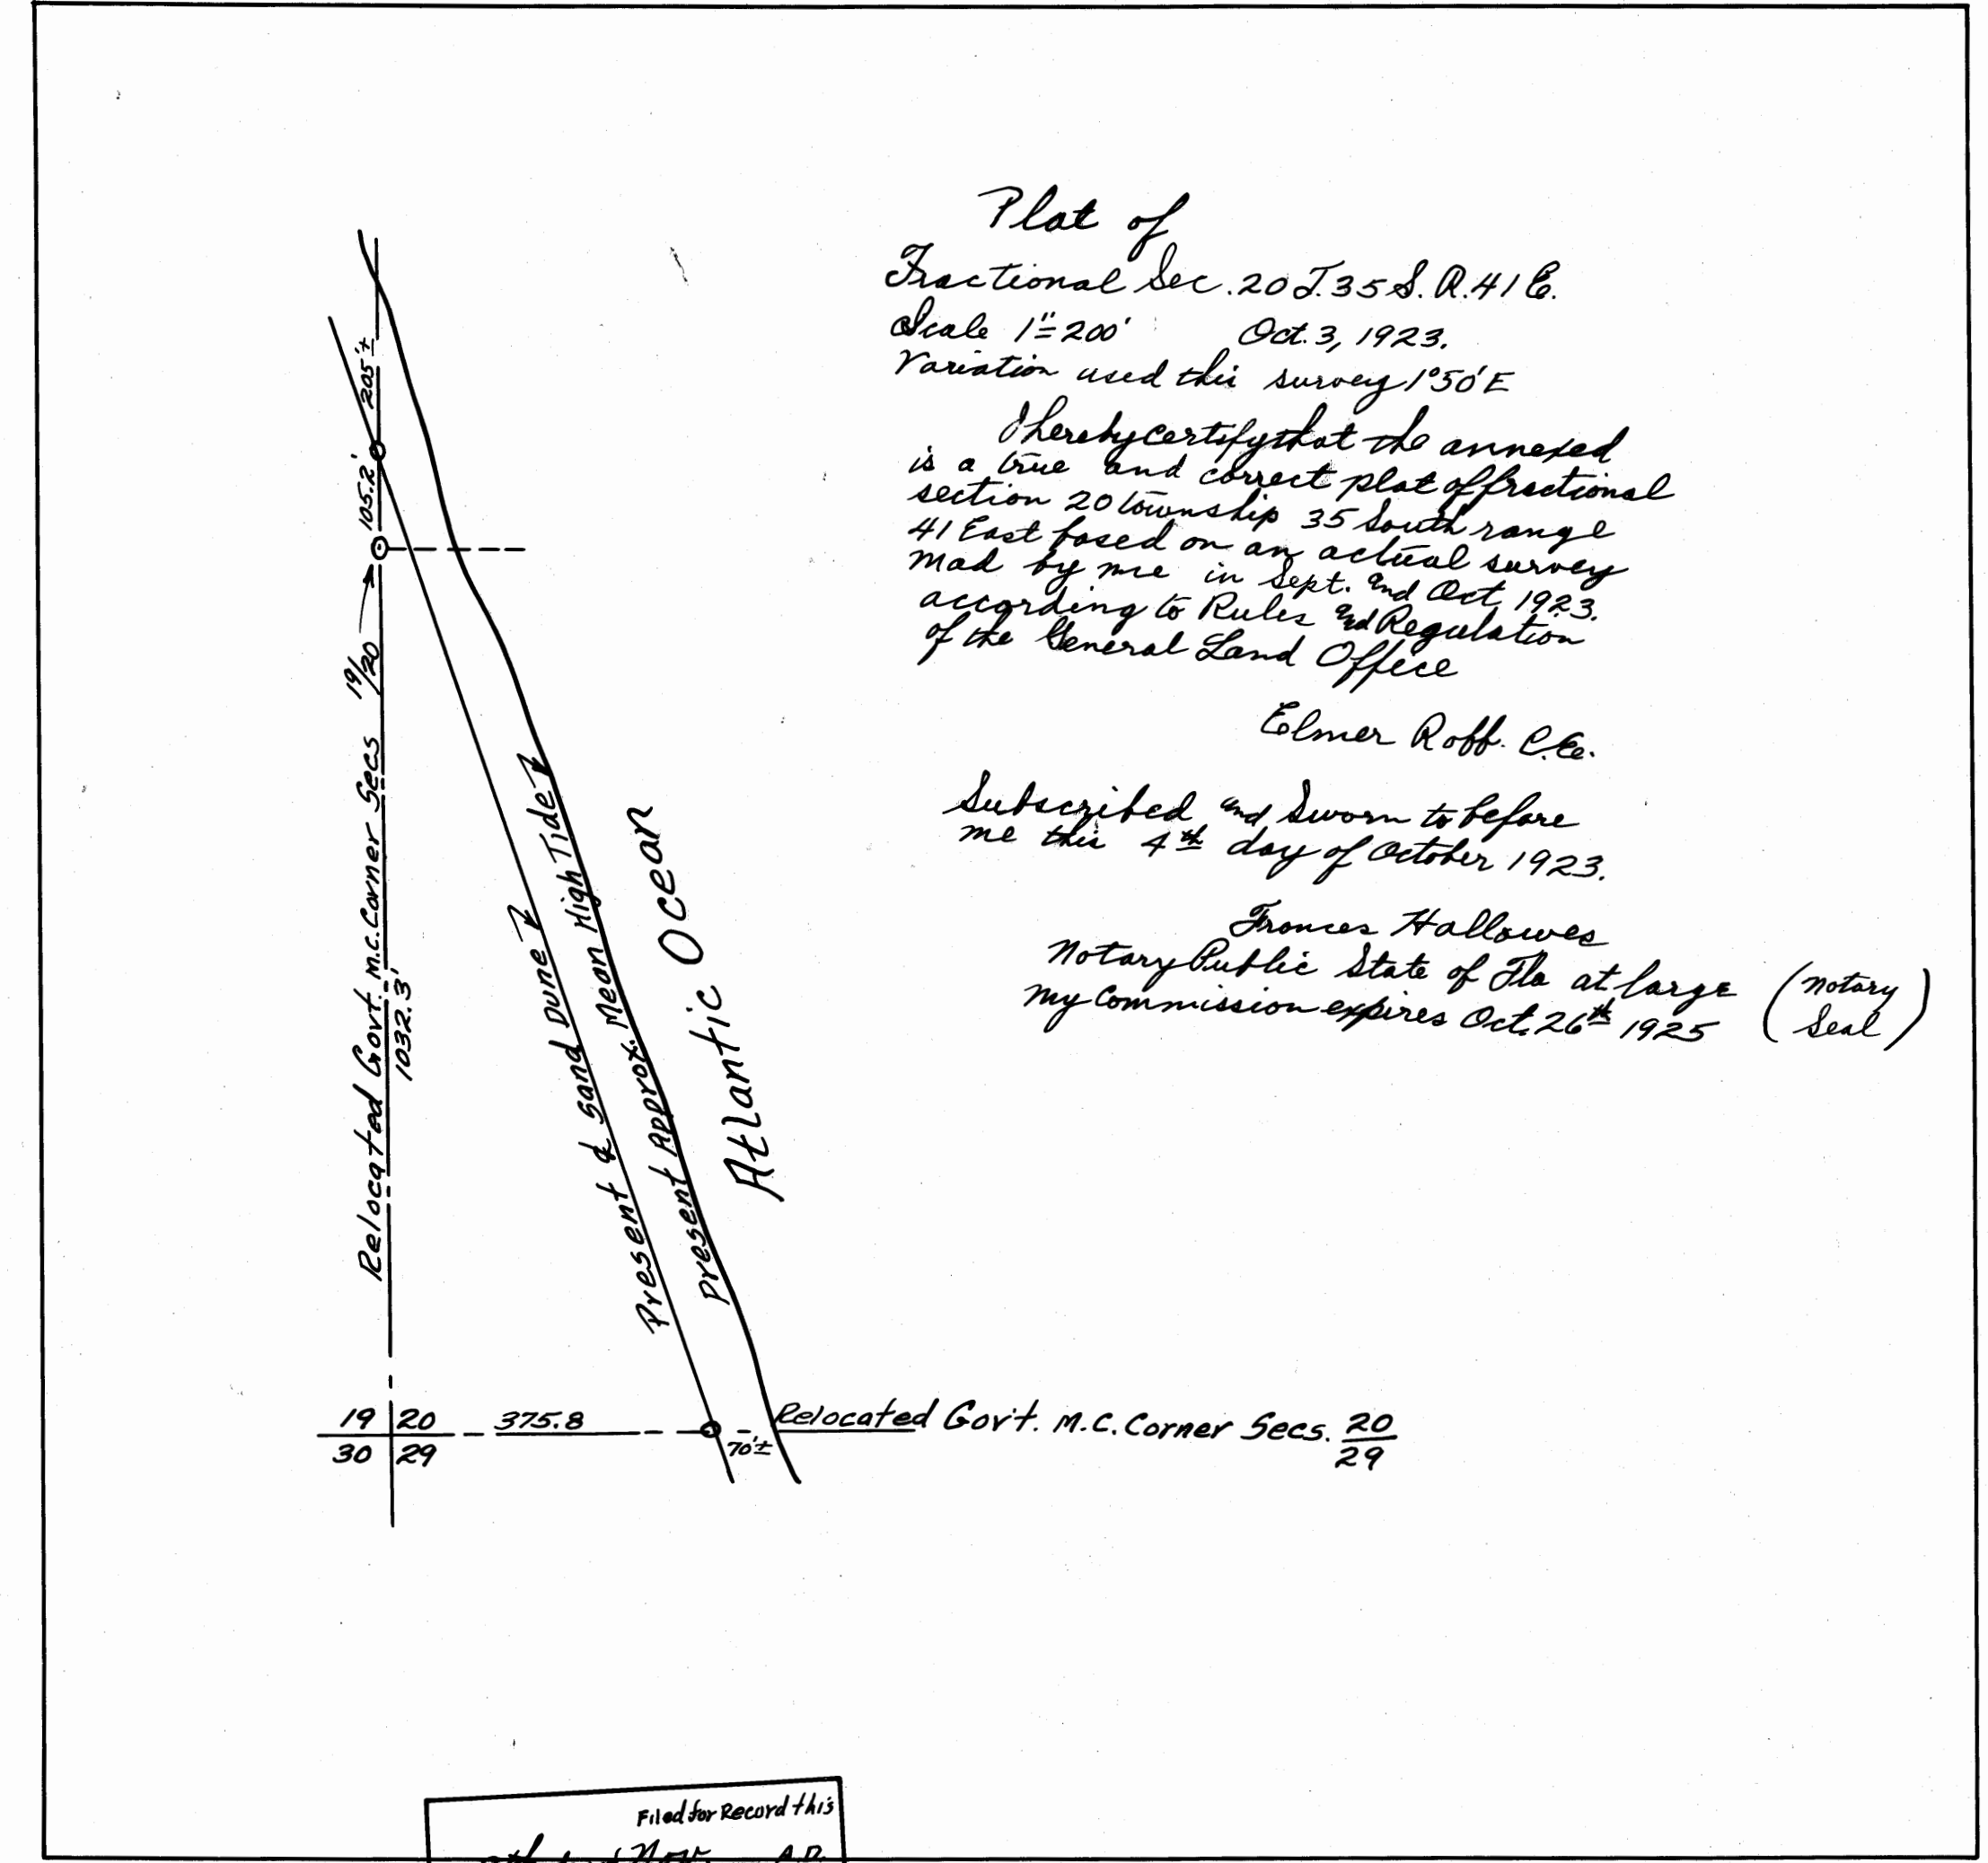 Plat of
Fractional Sec. 20 T. 35 S. R. 41 E.
Scale 1"=200' Oct. 3, 1923.
Variation used this survey 1°50'E
I hereby certify that the annexed
is a true and correct plat of fractional
section 20 township 35 South range
41 East based on an actual survey
mad by me in Sept. and Oct 1923.
according to Rules and Regulation
of the General Land Office
Elmer Roff. C.E.
Subscribed and Sworn to before
me this 4th day of October 1923.
Frances Hallowes
Notary Public State of Fla at large
My Commission expires Oct. 26th 1925
(Notary
Seal)
205'±
105.2'
Relocated Govt. M.C. Corner Secs 19/20
1032.3'
Present ₵ Sand Dune
Present Approx. Mean High Tide
Atlantic Ocean
19 20
30 29
375.8
70'±
Relocated Gov't. M.C. Corner Secs. 20/29
Filed for Record this
Nov. A.D.